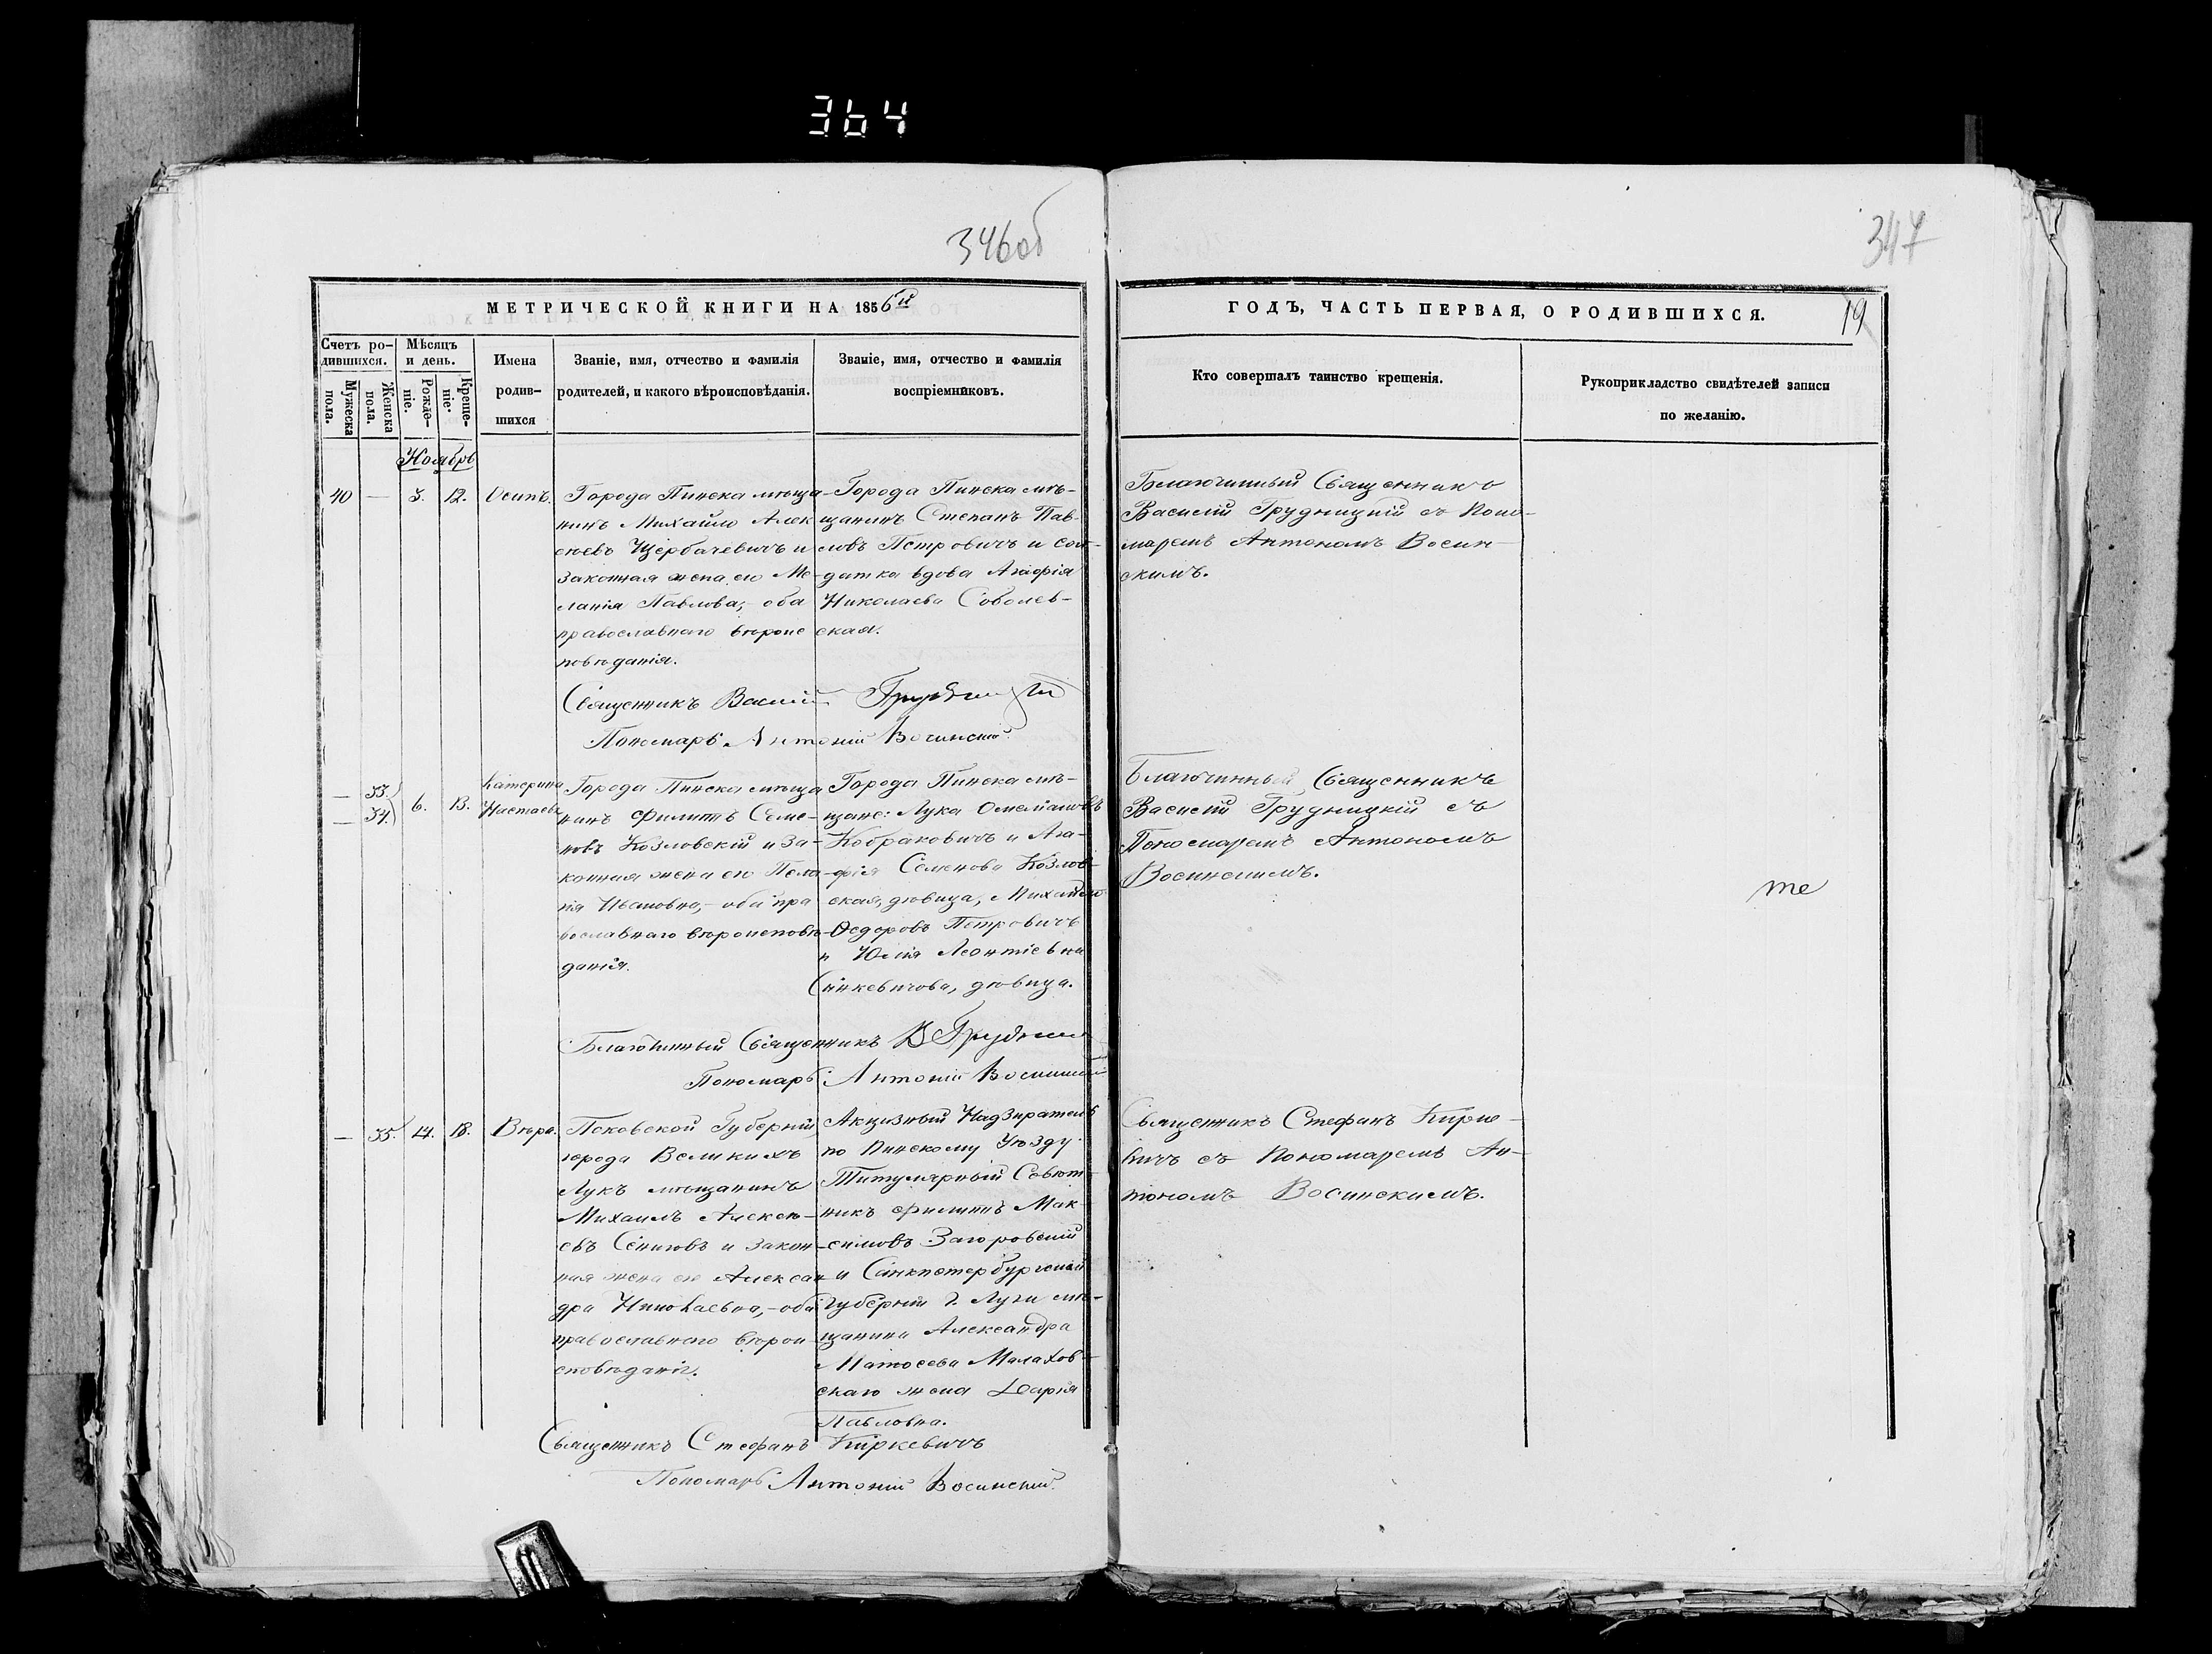 364
346об
347
МЕТРИЧЕСКОЙ КНИГИ НА 1856й
ГОДЪ, ЧАСТЬ ПЕРВАЯ, О РОДИВШИХСЯ.
19
Счетъ ро-
дившихся.
Мужеска
пола.
Женска
пола.
Мѣсяцъ
и день.
Рожде-
ніе.
Креще-
ніе.
Имена
родив-
шихся
Званіе, имя, отчество и фамилія
родителей, и какого вѣроисповѣданія.
Званіе, имя, отчество и фамилія
воспріемниковъ.
Кто совершалъ таинство крещенія.
Рукоприкладство свидѣтелей записи
по желанію.
Ноябрь
40 — 3. 12. Осипъ.
Города Пинска мѣща-
нинъ Михайло Алек
сѣевъ Щербачевичъ и
законная жена его Ме-
ланія Павлова, оба
православнаго вѣроис
повѣданія.
Города Пинска мѣ-
щанинъ Степанъ Пав-
ловъ Петровичъ и сол-
датка вдова Агафія
Николаева Соболев-
ская.
Благочинный Священникъ
Василій Грудницкій съ Поно-
маремъ Антономъ Восин-
скимъ.
Священникъ Василій Грудницкій
Пономарь Антоній Восинскій
— 33.
— 34.
6. 13.
Катерина
Настасья
Города Пинска мѣща
нинъ Филипъ Семе-
новъ Козловскій и за-
конная жена его Пела-
гія Ивановна, – оба пра
вославнаго вѣроисповѣ-
данія.
Города Пинска мѣ-
щане: Лука
Кобраковичъ и Ага-
фія Семенова Козлов-
ская, дѣвица, Михайло
Ѳедоровъ Петровичъ
и Юлія Леонтіевна
Синкевичова, дѣвица.
Благочинный Священникъ
Василій Грудницкій съ
Пономаремъ Антономъ
Восинскимъ.
те
Благочинный Священникъ В Грудницкій
Пономарь Антоній Восинскій
— 35. 14. 18. Вѣра.
Псковской Губерніи,
города Великихъ
Лукъ мѣщанинъ
Михаилъ Алексѣ-
евъ и закон-
ная жена его Алексан
дра Николаевна, – оба
православнаго вѣрои
сповѣданія.
Акцизный Надзиратель
по Пинскому Уѣзду
Титулярный Совѣт-
никъ Филипъ Мак-
симовъ Загоровскій
и Санкпетербургской
Губерніи г. Луги мѣ-
щанина Александра
Матѳеева Малахов-
скаго жена Дарія
Павловна.
Священникъ Стефанъ Кирке-
вичъ съ Пономаремъ Ан-
тономъ Восинскимъ.
Священникъ Стефанъ Киркевичъ
Пономарь Антоній Восинскій.